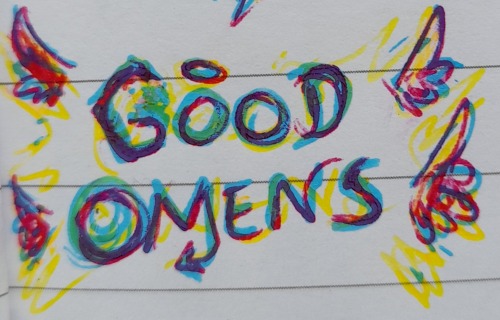 GOOD
OMENS